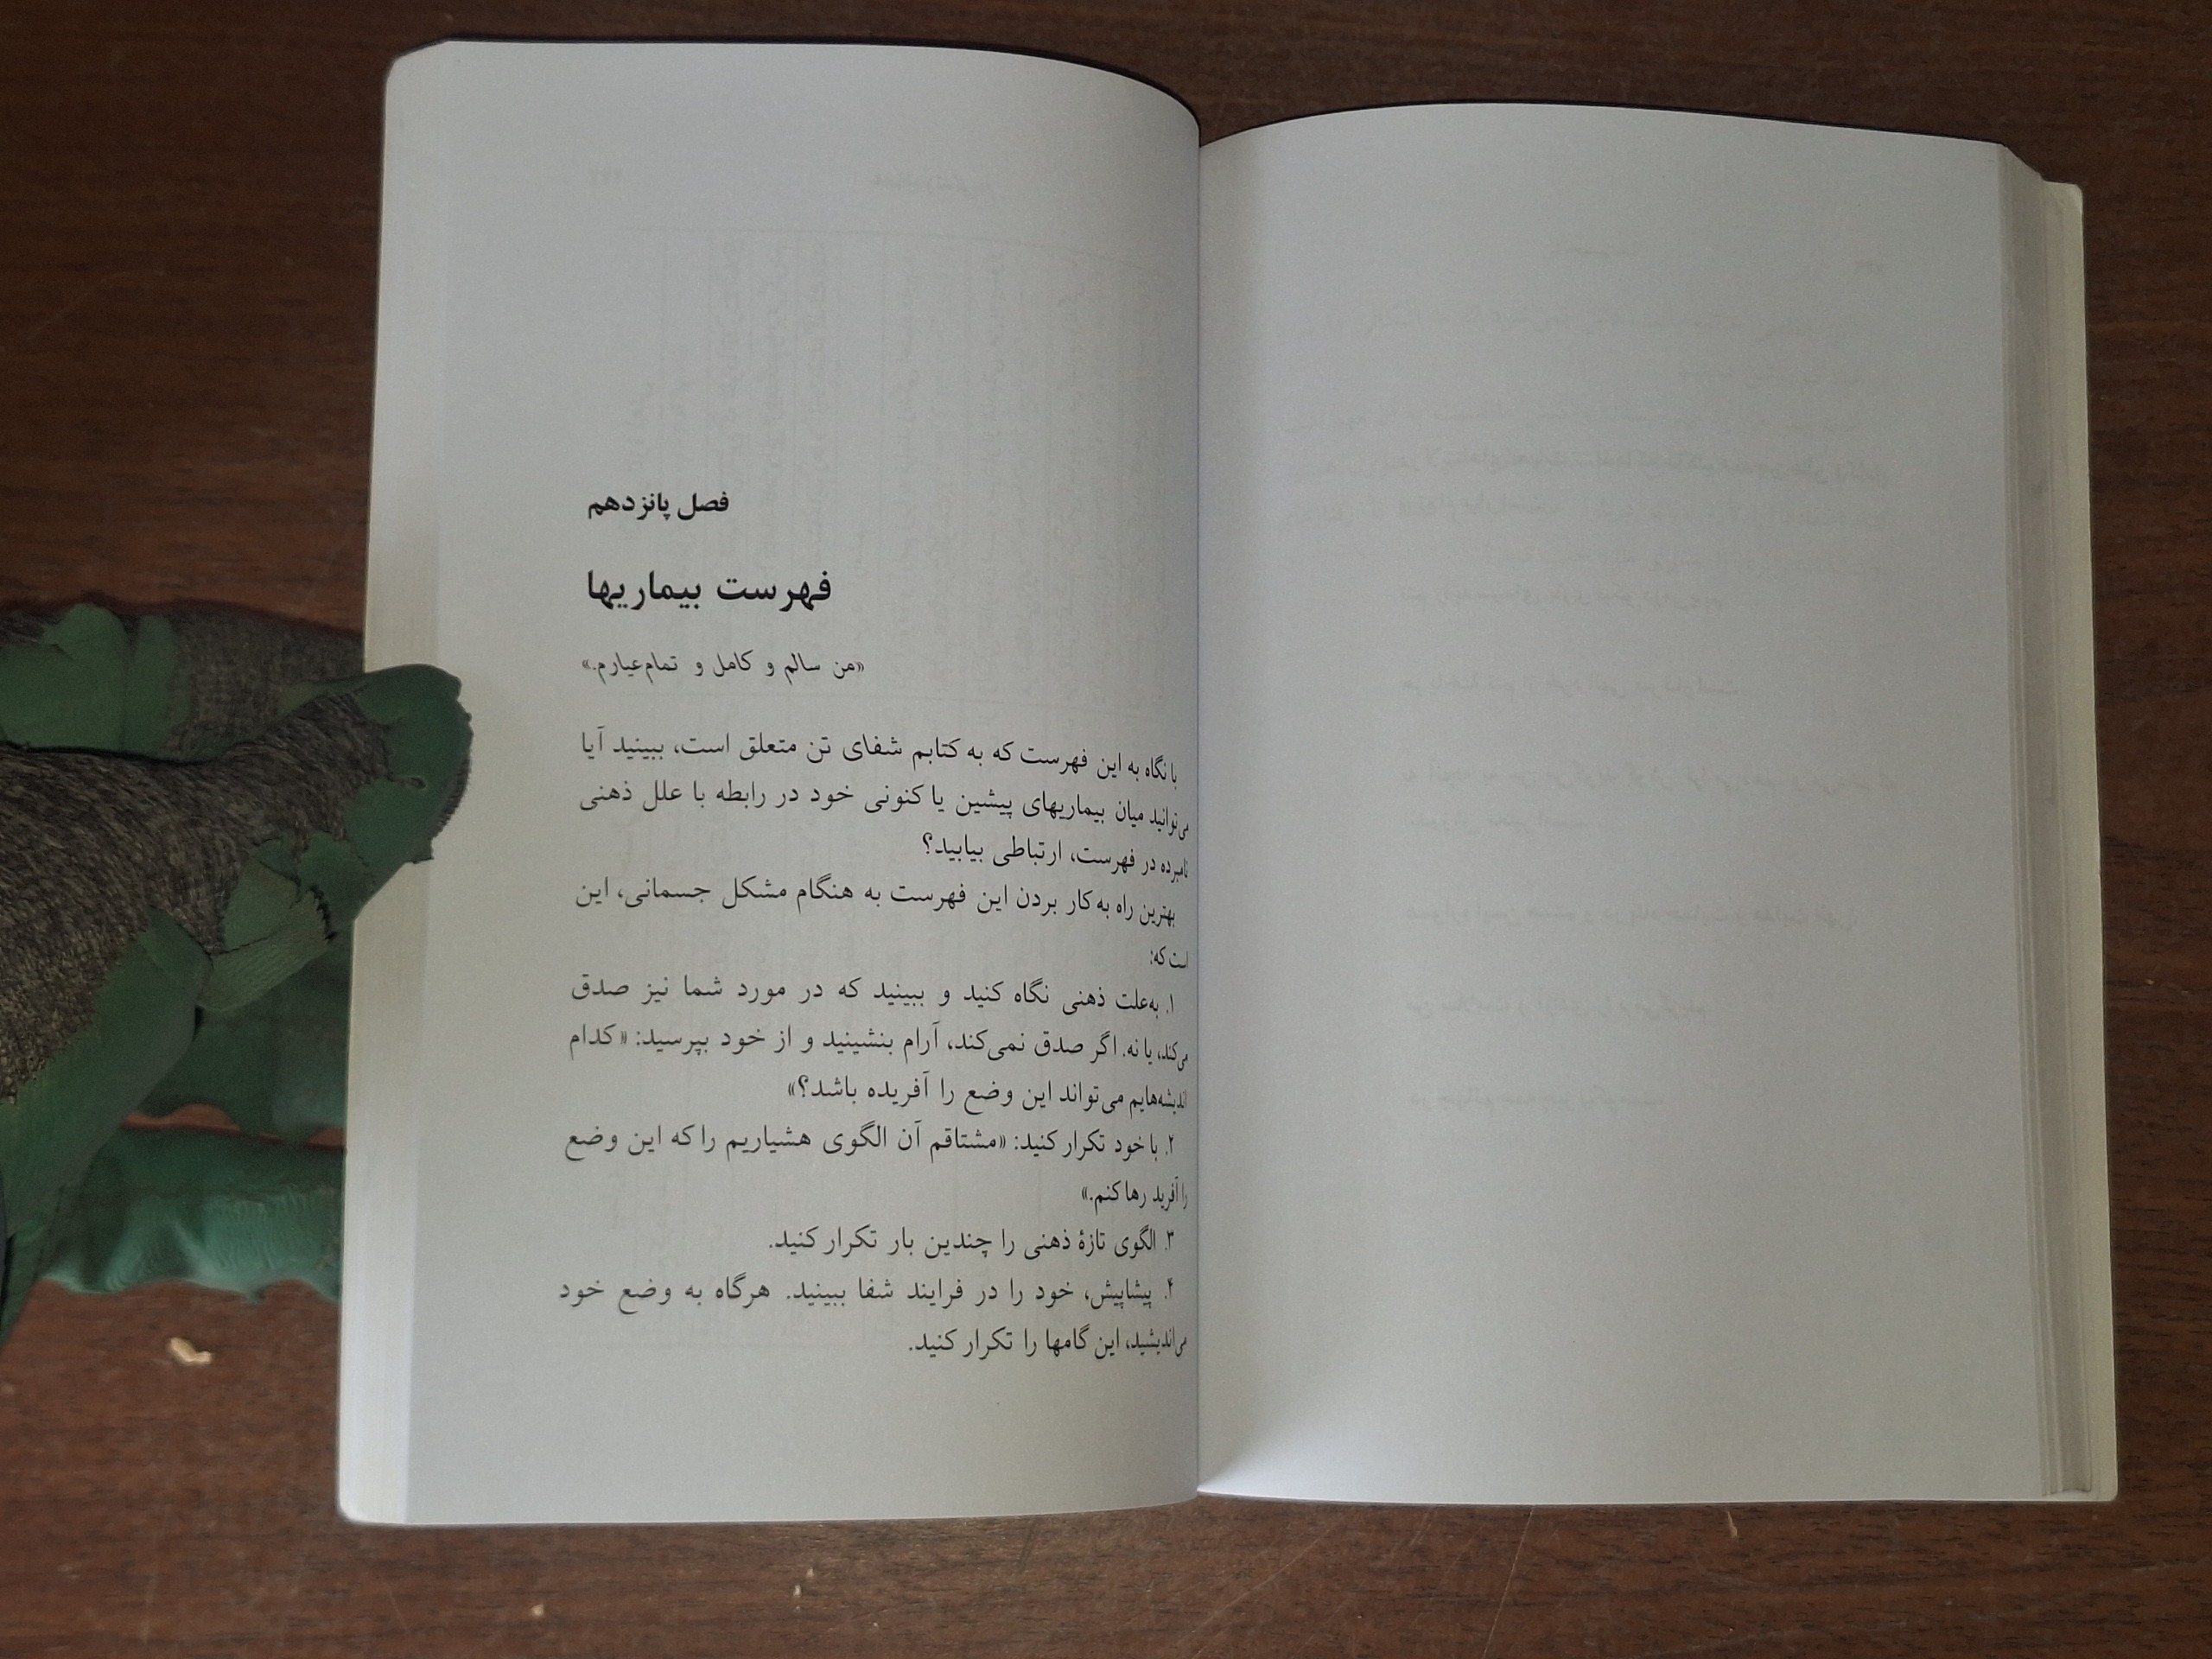 فصل پانزدهم
فهرست بیماریها
«من سالم و کامل و تمام‌عیارم.»
با نگاه به این فهرست که به کتابم شفای تن متعلق است، ببینید آیا
می‌توانید میان بیماریهای پیشین یا کنونی خود در رابطه با علل ذهنی
نامبرده در فهرست، ارتباطی بیابید؟
بهترین راه به‌کار بردن این فهرست به هنگام مشکل جسمانی، این
است که:
۱. به‌علت ذهنی نگاه کنید و ببینید که در مورد شما نیز صدق
می‌کند، یا نه. اگر صدق نمی‌کند، آرام بنشینید و از خود بپرسید: «کدام
اندیشه‌هایم می‌تواند این وضع را آفریده باشد؟»
۲. با خود تکرار کنید: «مشتاقم آن الگوی هشیاریم را که این وضع
را آفرید رها کنم.»
۳. الگوی تازهٔ ذهنی را چندین بار تکرار کنید.
۴. پیشاپیش، خود را در فرایند شفا ببینید. هرگاه به وضع خود
می‌اندیشید، این گامها را تکرار کنید.